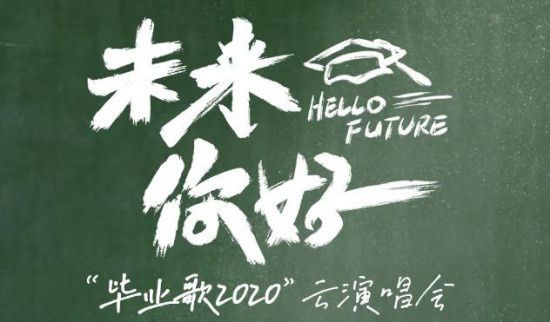 未来
HELLO
FUTURE
你好
“毕业歌2020”云演唱会